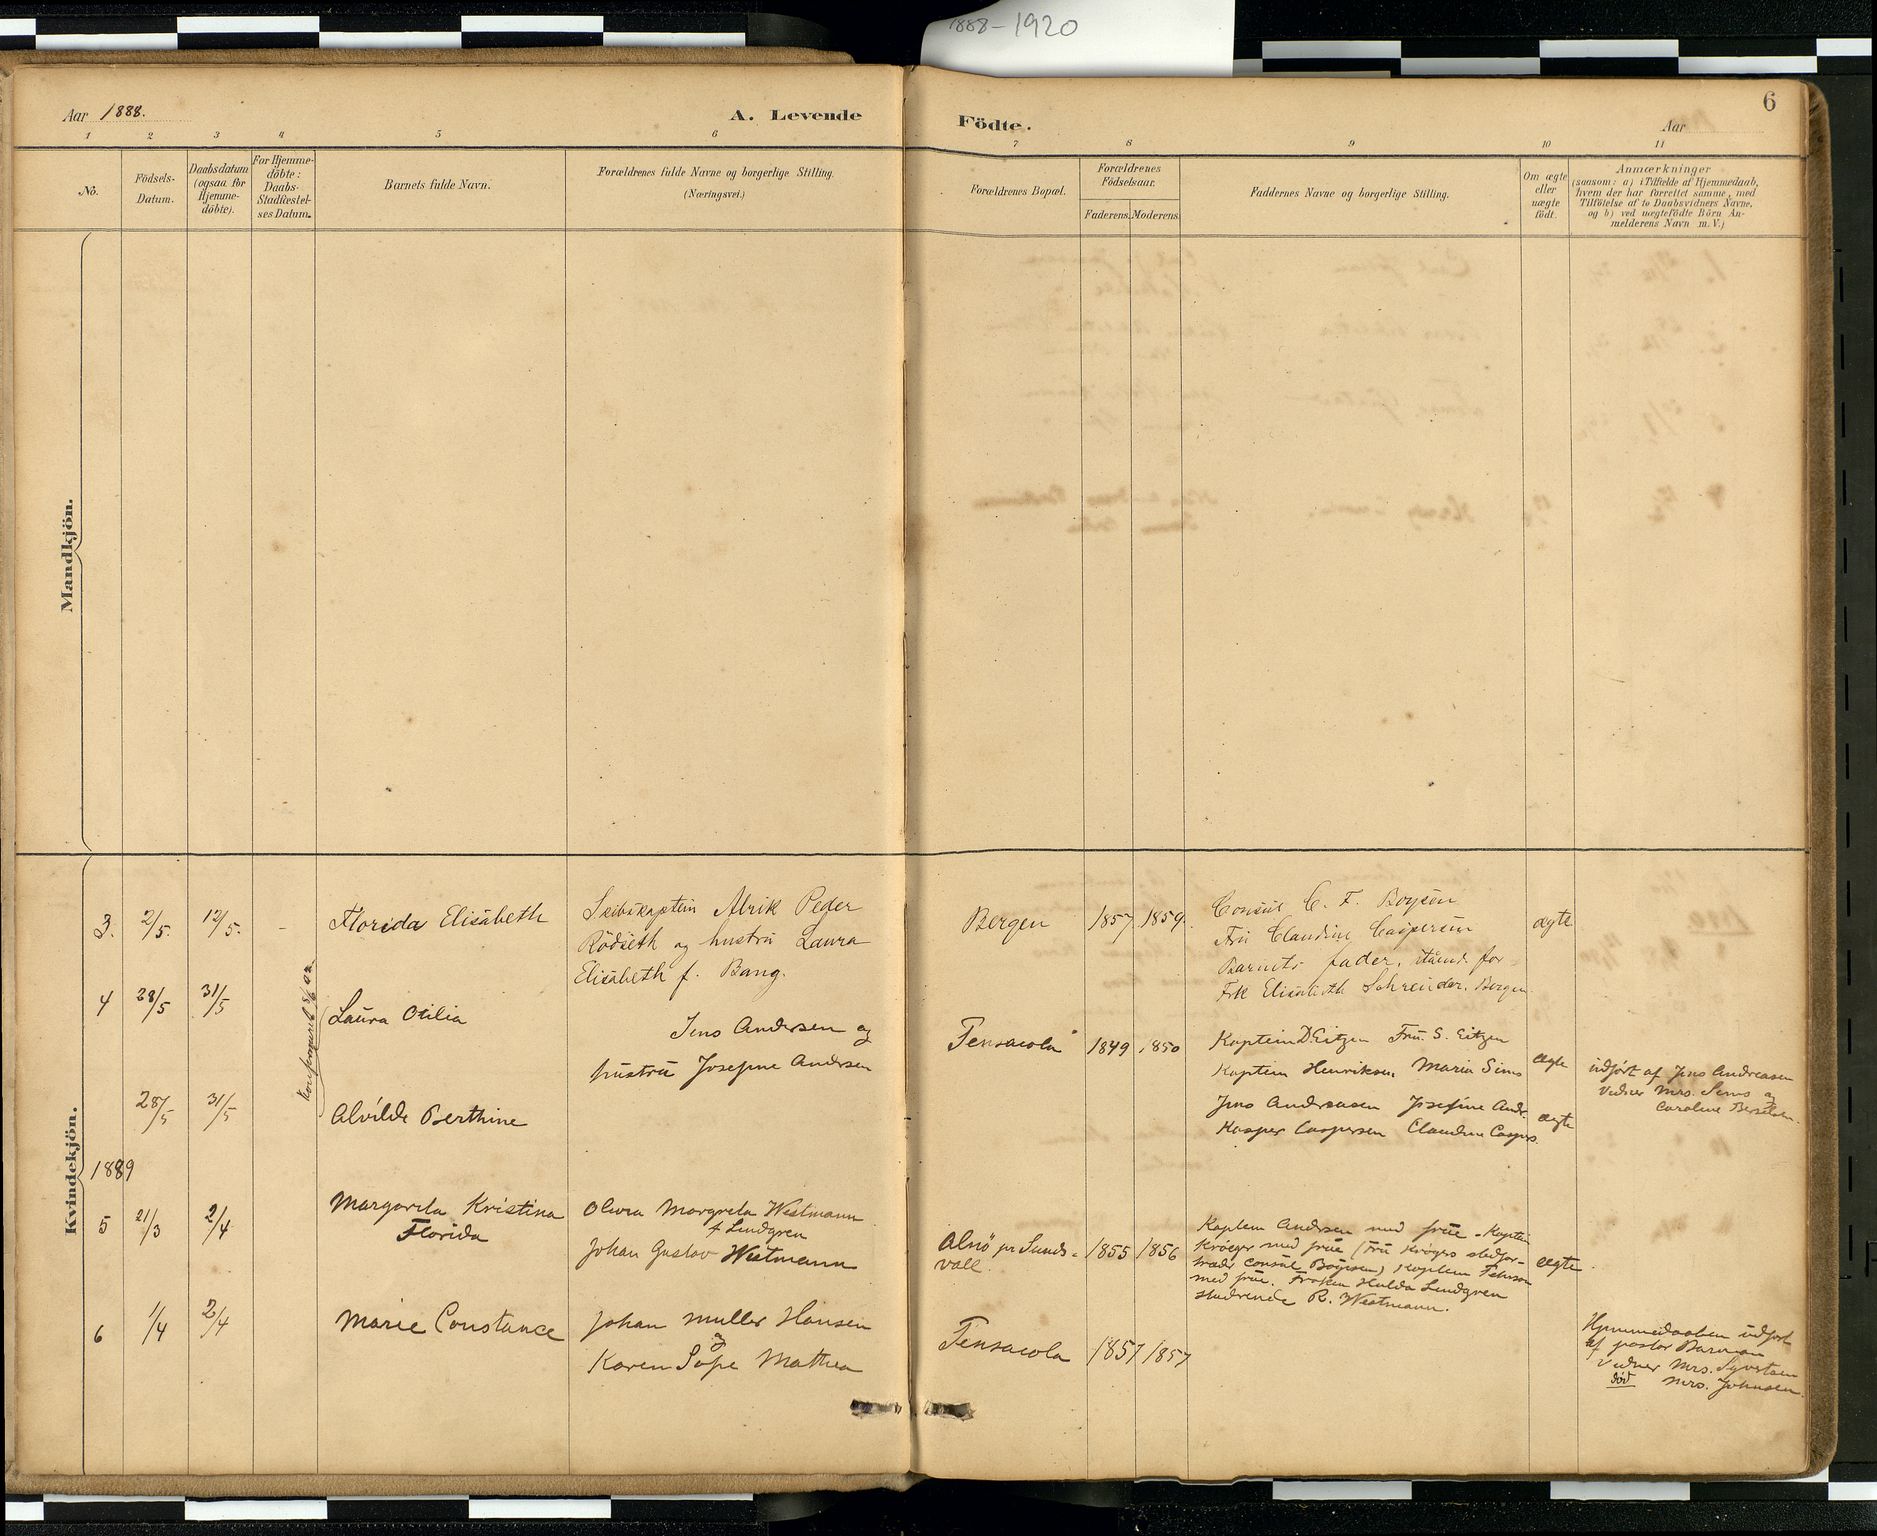 1888-1920
6
Aar 1888.
A. Levende
Födte.
Aar
1 2 3 4 5 6 7 8 9 10 11
No.
Födsels-
Datum.
Daabsdatum
(ogsaa for
Hjemme-
döbte).
For Hjemme-
döbte:
Daabs-
Stadfæstel-
ses Datum.
Barnets fulde Navn.
Forældrenes fulde Navne og borgerlige Stilling.
(Næringsvei.)
Forældrenes Bopæl.
Forældrenes
Födselsaar.
Faderens. Moderens.
Faddernes Navne og borgerlige Stilling.
Om ægte
eller
uægte
födt.
Anmærkninger
(saasom: a) i Tilfælde af Hjemmedaab,
hvem der har forrettet samme, med
Tilföielse af to Daabsvidners Navne,
og b) ved uægtefödte Börn An-
melderens Navn m. V.)
Mandkjön.
Kvindekjön.
3. 2/5. 12/5. -
Florida Elisabeth
Skibskaptein Alrik Peder
Rödseth og hustru Laura
Elisabeth f. Bang.
Bergen
1857. 1859.
Consul C. F. Boysen
Fru Claudine Caspersen
Barnets fader, stæend. for
Frk Elisabeth Schreuder. Bergen
ægte
4 28/5 31/5
Laura Otilia
Jens Andersen og
hustru Josefine Andersen
Pensacola
1849 1850
Kaptein D Eitzen Fru. S. Eitzen
Kaptein Henriksen, Maria Sims
ægte
udført af Jens Andreasen
Vidner Mrs. Sims og
Caroline
28/5 31/5
Alvilde Berthine
Jens Andreasen Josefine Andr.
Kasper Caspersen Claudine Caspers.
ægte
1889
5 21/3 2/4
Margareta Kristina
Florida
Olivia Margreta Westmann
f Lindgren
Johan Gustav Westmann
Alnö pr Sunds-
vall
1855 1856
Kaptein Andersen med frue - Kaptein
Kröger med frue (Fru Krögers stedfor-
træder, consul Boysen) Kaptein Pehrson
med frue. Froken Hulda Lindgren
studerende R. Westmann.
ægte
6 1/4 2/4
Marie Constance
Johan Muller Hansen
og
Karen Sofie Mathea
Pensacola
1857 1857
Hjemmedaaben udført
af pastor
Vidner Mrs. Syvertsen
død Mrs. Johnsen.